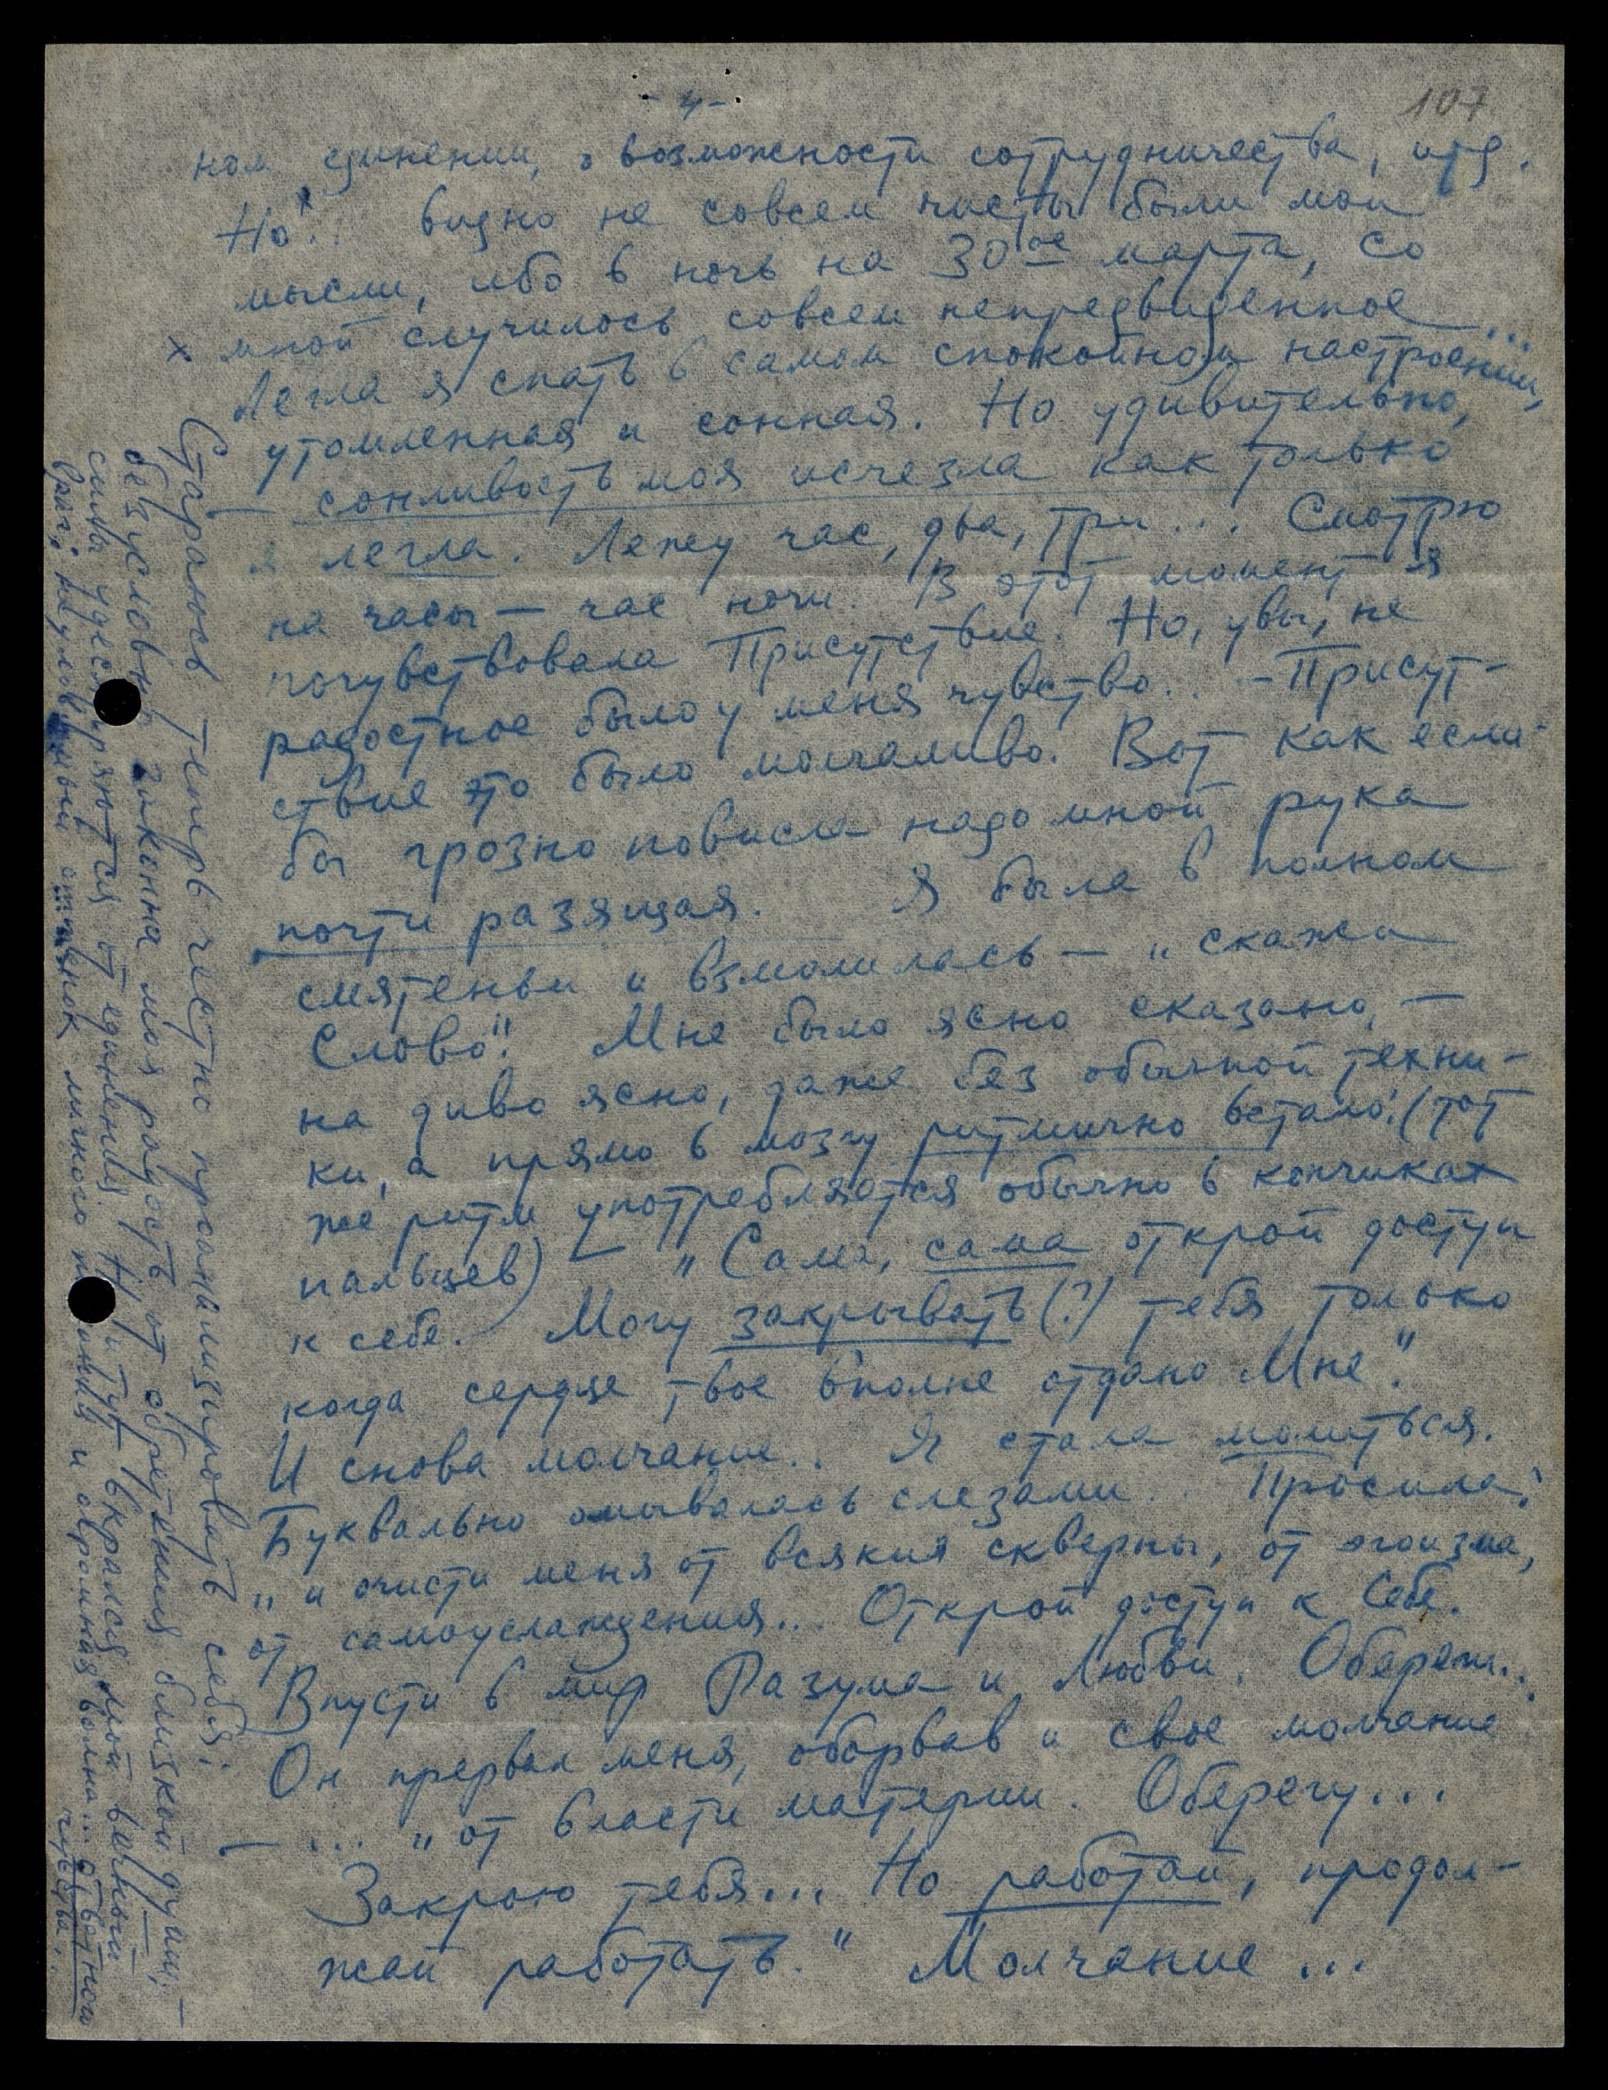 - 4 -
107
ном единении, о возможности сотрудничества, итд.
Но x.. видно не совсем чисты были мои
мысли, ибо в ночь на 30ое марта, со
мной случилось совсем непредвиденное...
Легла я спать в самом спокойном настроении,
утомленная и сонная. Но удивительно,
— сонливость моя исчезла как только
я легла. Лежу час, два, три... Смотрю
на часы — час ночи. В этот момент я
почувствовала Присутствие. Но, увы, не
радостное было у меня чувство.. — Присут-
ствие это было молчаливо. Вот как если-
бы грозно повисла надо мной рука
почти разящая. Я была в полном
смятеньи и взмолилась — „скажи
Слово". Мне было ясно сказано, —
на диво ясно, даже без обычной техни-
ки, а прямо в мозгу ритмично встало! (тот
же ритм употребляется обычно в кончиках
пальцев) — „Сама, сама открой доступ
к себе. Могу закрывать (?) тебя только
когда сердце твое вполне отдано Мне."
И снова молчание.. Я стала молиться.
Буквально омывалась слезами.. Просила:
„и очисти меня от всякия скверны, от эгоизма,
от самоуслаждения... Открой доступ к Себе.
Впусти в мир Разума и Любви. Обереги..
Он прервал меня, оборвав и свое молчание
— ... „от власти материи. Оберегу...
Закрою тебя... Но работай, продол-
жай работать." Молчание...
x Стараюсь теперь честно проанализировать себя;
безусловно законна моя радость от обретения близкой души, —
силы удесятеряются от единения. Но и тут вкрался мой вечный
враг: неуловимый оттенок личного и огромная волна... ответной
чувства.